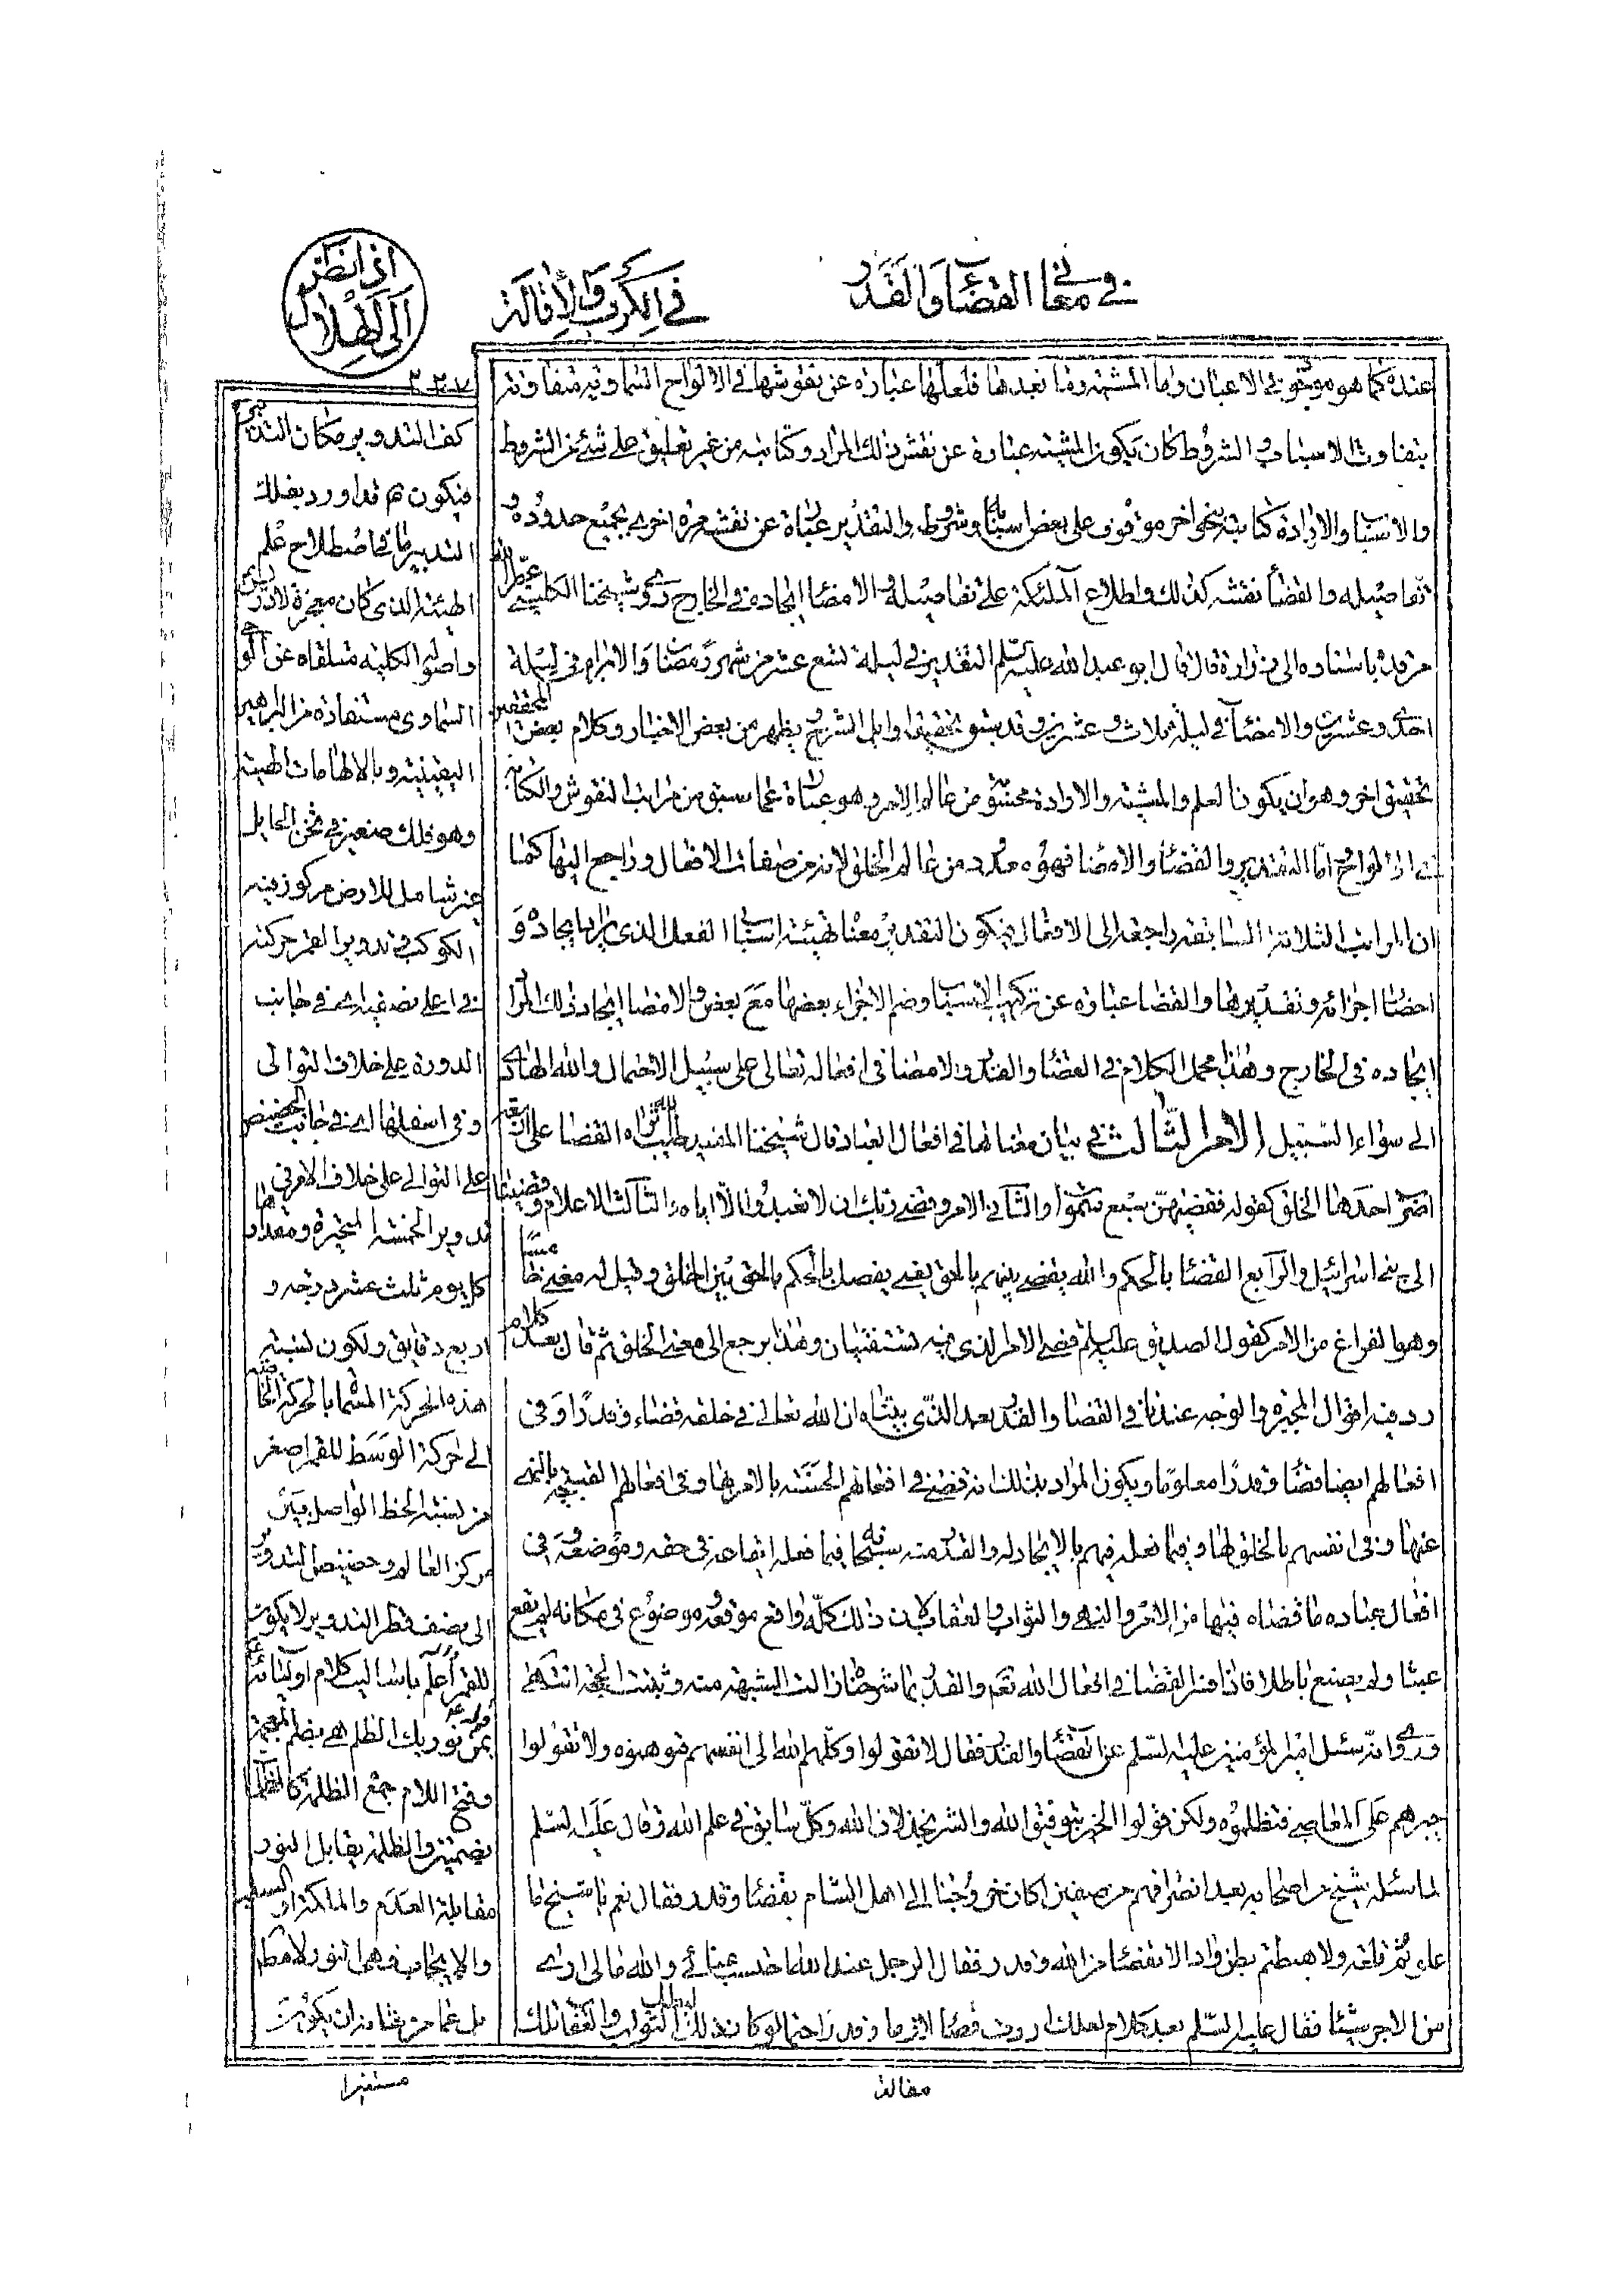 في معاني القضاء والقدر
في الكرب والإقالة
إذا نظر إلى الهلال
٣٢٧
عنده كما هو موجود في الاعيان واما المشيته وما بعدها فلعلها عبارة عن نقوشها في الالواح السماويه متفاوته
بتفاوت الاسباب والشروط كان يكون المشيته عبارة عن نقش ذلك المراد وكتابته من غير تعليق على شئ من الشروط
والاسباب والارادة كتابته بنحو اخر موقوف على بعض اسبابه وشروطه والتقدير عبارة عن نقشه مرة اخرى بجميع حدوده و
تفاصيله والقضاء نقشه كذلك واطلاع الملئكة على تفاصيله والامضاء ايجاده في الخارج روى شيخنا الكليني عطر الله
مرقده باسناده الى زرارة قال قال ابو عبد الله عليه السلم التقدير في ليلة تسع عشر من شهر رمضان والابرام في ليلة
احدى وعشرين والامضاء في ليلة ثلاث وعشرين وقد سبق تحقيقه اوايل الشرح يظهر من بعض الاخبار وكلام بعض المحققين
تحقيق اخر وهو ان يكون العلم والمشيته والارادة من عالم الامر وهو عبارة عما سبق من مراتب النقوش والكتابة
في الالواح اما التقدير والقضاء والامضا فهو معدود من عالم الخلق لانه من صفات الافعال وراجع اليها كما
ان المراتب الثلاثة السابقه راجعه الى الافعال فيكون التقدير معناه تهيئته اسباب الفعل الذي يراد ايجاده و
احضار اجزائه وتقديرها والقضا عبارة عن تركيب الاسباب وضم الاجزاء بعضها مع بعض والامضا ايجاد ذلك المراد
ايجاده في الخارج وهذا مجمل الكلام في القضاء والقدر والامضا في افعاله تعالى على سبيل الاحتمال والله الهادي
الى سواء السبيل الامر الثالث في بيان معناهما في افعال العباد قال شيخنا المفيد طيب الله ثراه القضا على اربعة
اضرب احدها الخلق كقوله فقضيهن سبع سموات والثاني الامر وقضى ربك ان لا تعبدوا الا اياه والثالث الاعلام وقضينا
الى بني اسرائيل والرابع القضاء بالحكم والله يقضي بينهم بالحق يعني يفصل بالحكم بالحق بين الخلق وقيل له معنى خامسا
وهو الفراغ من الامر كقول الصديق عليه السلم قضى الامر الذي فيه تستفتيان وهذا يرجع الى معنى الخلق ثم قال بعد كلام
رد فيه اقوال المجبره والوجه عندنا في القضا والقدر بعد الذي بيناه ان الله تعالى في خلقه قضاء وقدرا وفي
افعالهم ايضا قضاء وقدرا معلوما ويكون المراد بذلك انه قضى في افعالهم الحسنة بالامر بها وفي افعالهم القبيحة بالنهى
عنها وفي انفسهم بالخلق لها وفيما فعله فيهم بالايجاد له والقدر منه سبحانه فيما فعله ايقاعه في حقه وموضعه وفي
افعال عباده ما قضاه فيها من الامر والنهى والثواب والعقاب لان ذلك كله واقع موقعه موضوع في مكانه لم يقع
عبثا ولم يصنع باطلا فاذا فسر القضاء في افعال الله تعم والقدر بما شرحناه زالت الشبهة منه وثبتت الحجة انتهى
وروى انه سئل امير المؤمنين عليه السلم عن القضاء والقدر فقال لا تقولوا وكلهم الله الى انفسهم فتوهنوه ولا تقولوا
جبرهم على المعاصي فتظلموه ولكن قولوا الخير بتوفيق الله والشر بخذلان الله وكل سابق في علم الله وقال عليه السلم
لما سئله شيخ من اصحابه بعد انصرافهم من صفين اكان خروجنا الى اهل الشام بقضاء وقدر فقال نعم يا شيخ ما
علوتم تلعة ولا هبطتم بطن واد الا بقضاء من الله وقدر فقال الرجل عند الله احتسب عنائى والله ما لى ارى
من الاجر شيئا فقال عليه السلم بعد كلام لعلك اردت قضاء لازما وقدرا حتما لو كان ذلك لبطل الثواب والعقاب تلك
مقالة
كف التدوير مكان التدبير
فيكون هم قد اورد بفلك
التدبير ما في اصطلاح علم
الهيئه الذي كان معجزة لادريس
واصوله الكليه متلقاه عن الوحى
السماوى مستفاده من البراهين
اليقينيته وبالالهامات الالهيته
وهو فلك صغير في ثخن الحامل
غير شامل للارض مركوز فيه
الكوكب في تدوير القمر حركته
في اعلى نصفيه اى في جانب
الدورة على خلاف التوالى
وفي اسفلها اى في جانب الحضيض
على التوالى على خلاف الامر في
تدوير الخمسة المتحيرة ومقدارها
كل يوم ثلث عشر درجه و
اربع دقايق ولكون نسبته
هذه الحركة المسماة بالحركة الخاصه
الى حركة الوسط للقمر اصغر
من نسبته الخط الواصل بين
مركز العالم وحضيض التدوير
الى نصف قطر التدوير لا يكون
للقمر
بمن نور بك الظلم هي بضم المعجمة
وفتح اللام جمع الظلمة
بضمتين والظلمة يقابل النور
مقابلة العدم والملكة او السلب
والايجاب
بل عما من شانه ان يكون
مستنيرا